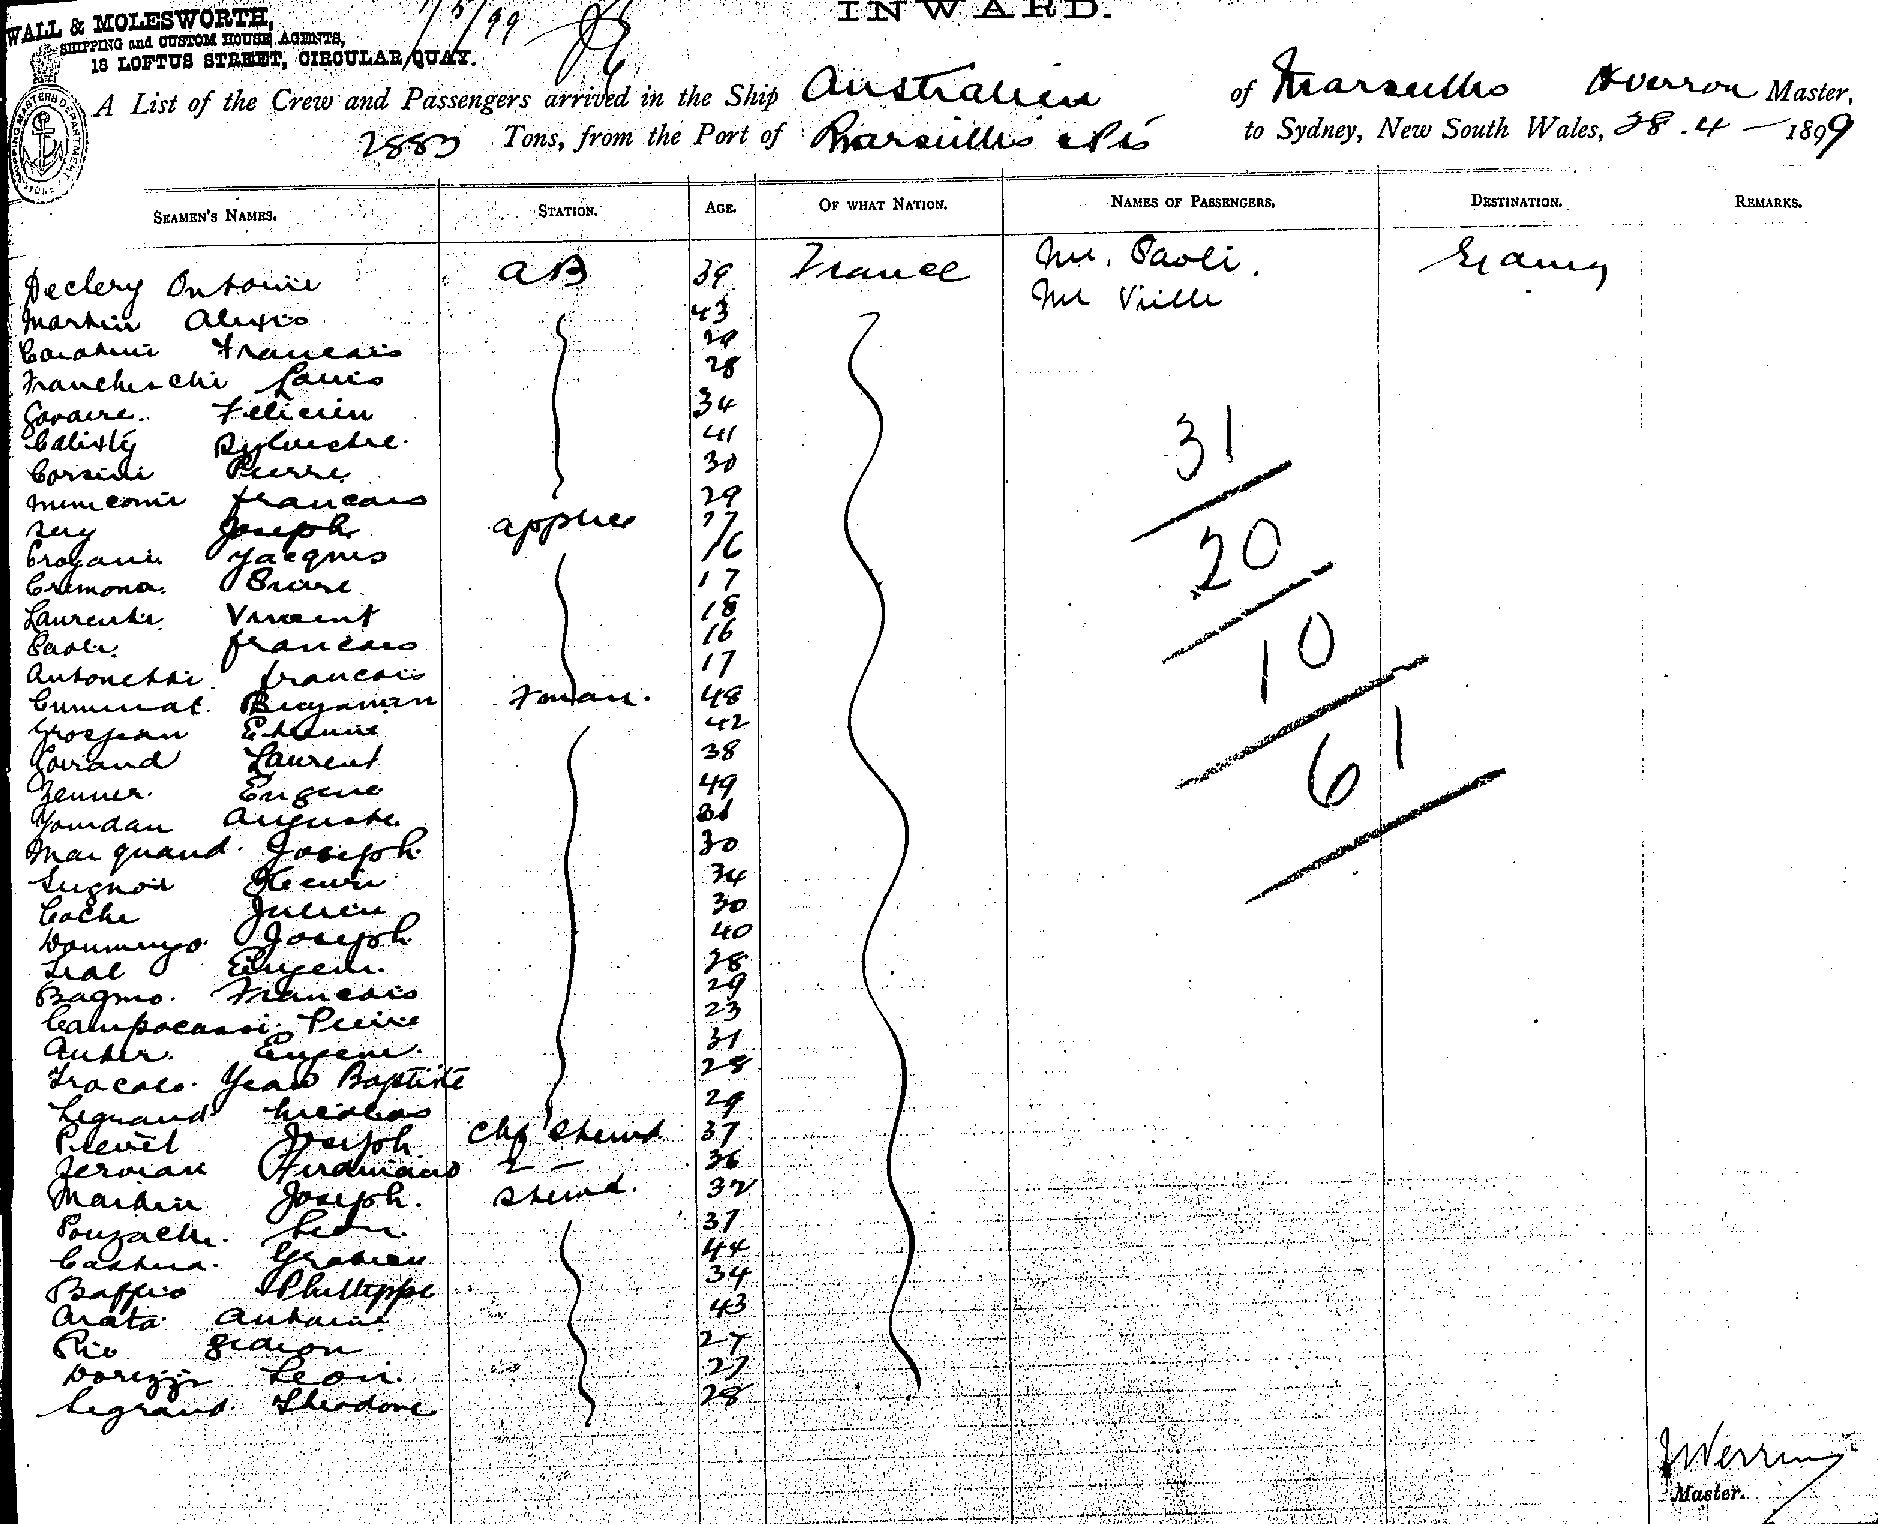 INWARD.
WALL & MOLESWORTH,
SHIPPING and CUSTOM HOUSE AGENTS,
18 LOFTUS STREET, CIRCULAR QUAY.
1/5/99
A List of the Crew and Passengers arrived in the Ship Australien of Marseilles Averron Master,
2883 Tons, from the Port of Marseilles &c to Sydney, New South Wales, 28.4-1899
SEAMEN'S NAMES. STATION. AGE. OF WHAT NATION. NAMES OF PASSENGERS. DESTINATION. REMARKS.
Declery Antoine AB 39 France Mr. Paoli.
Martin Alexis 43 Mr Vielle
Francois 29
Francheschi Louis 28
Felicien 34
Calisty Sylvestre 41
Corsini Pierre 30
Francois 29
Joseph apptice 17
Jacques 16
Cremona Pierre 17
Laurenti Vincent 18
Paoli Francois 16
Antonetti Francois 17
Benjamin Fman. 48
Grosjean Etienne 42
Laurent 38
Zenner Eugene 49
Jourdan Auguste 31
Marquand Joseph 30
Henri 34
Coche Julien 30
Dommingo Joseph 40
Eugene 28
Bagmo Francois 29
Campocassi Pierre 23
Auber Eugene 31
Jean Baptiste 28
Legrand Nicolas 29
Prevel Joseph Chf Stewd 37
Ferdinand 2 - 36
Martin Joseph. Stewd. 32
Leon 37
Gratien 44
Baffico Phillippe 34
Arata Antoine 43
Pio Gedeon 27
Leon 27
Legrand Theodore 28
31
20
10
61
Master.